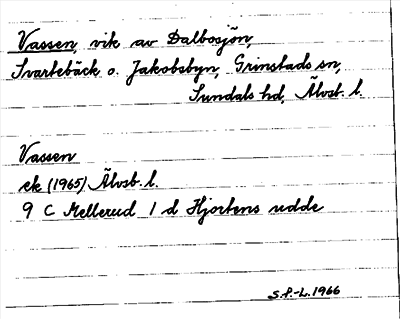 Vassen, vik av Dalbosjön,
Svartebäck o. Jakobsbyn, Grinstads sn,
Sundals hd, Älvsb. l.
Vassen
ek (1965) Älvsb. l.
9 C Mellerud 1 d Hjortens udde
S.F.-L. 1966